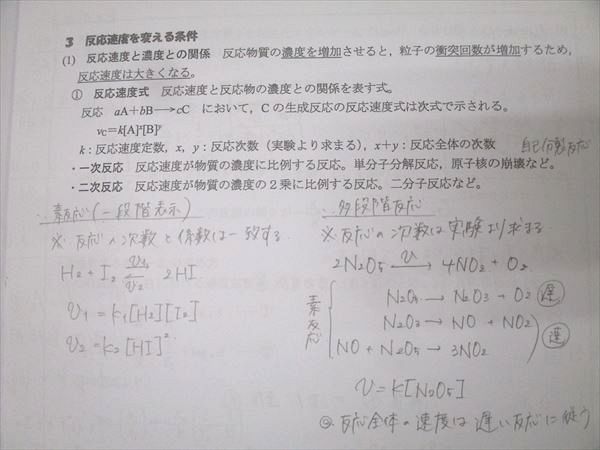 3 反応速度を変える条件
(1) 反応速度と濃度との関係 反応物質の濃度を増加させると，粒子の衝突回数が増加するため，
反応速度は大きくなる。
① 反応速度式 反応速度と反応物の濃度との関係を表す式。
反応 aA＋bB→cC において，Cの生成反応の反応速度式は次式で示される。
vc＝k[A]ˣ[B]ʸ
k：反応速度定数，x，y：反応次数（実験より求まる），x＋y：反応全体の次数
・一次反応 反応速度が物質の濃度に比例する反応。単分子分解反応，原子核の崩壊など。
・二次反応 反応速度が物質の濃度の２乗に比例する反応。二分子反応など。
素反応(一段階表示)
※ 反応の次数と係数は一致する.
H₂ + I₂ ⇄ 2HI
v₁
v₂
v₁ = k₁[H₂][I₂]
v₂ = k₂[HI]²
多段階反応
※ 反応の次数は実験より求まる
2N₂O₅ →v 4NO₂ + O₂
素反応
N₂O₅ → N₂O₃ + O₂ 遅
N₂O₃ → NO + NO₂
NO + N₂O₅ → 3NO₂
速
v = k[N₂O₅]
◎ 反応全体の速度は遅い反応に従う